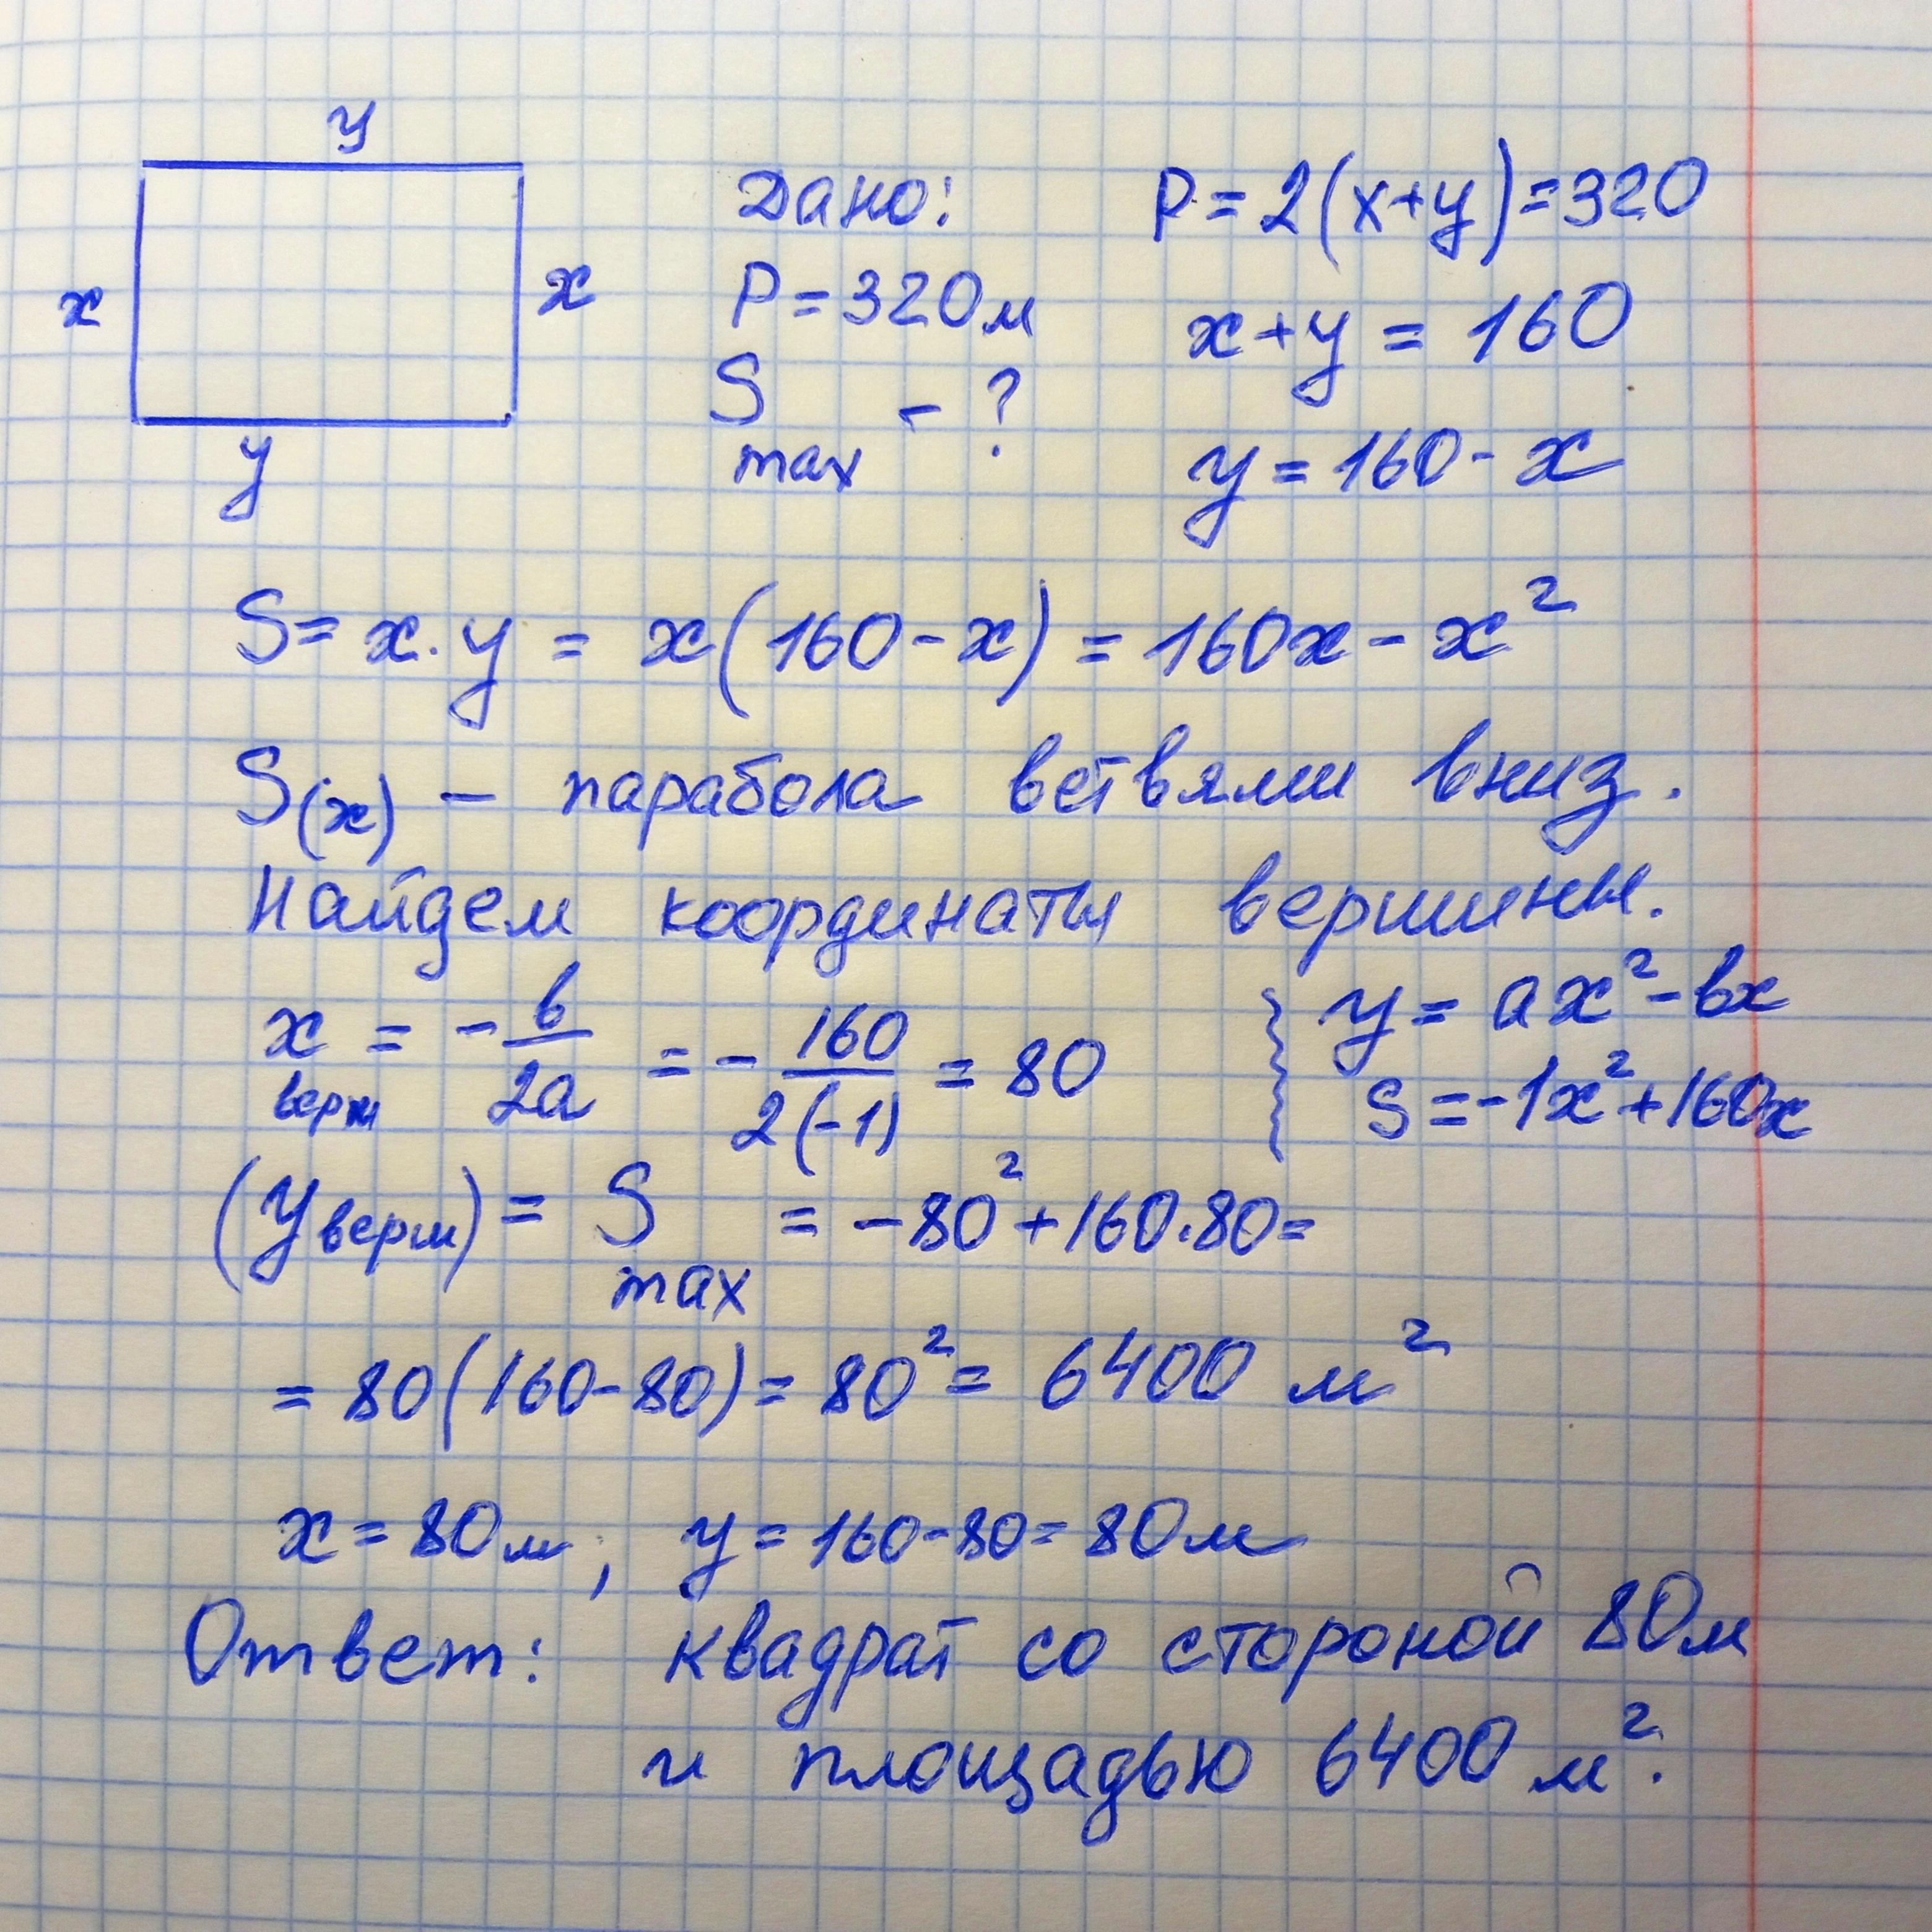 y
x
x
y
Дано:
P = 320м
S max - ?
P = 2(x+y) = 320
x+y = 160
y = 160 - x
S = x · y = x(160 - x) = 160x - x²
S(x) - парабола ветвями вниз.
Найдем координаты вершины.
x верш = - b/2a = - 160/2(-1) = 80
y = ax² - bx
S = -1x² + 160x
(y верш) = S max = -80² + 160·80 =
= 80(160-80) = 80² = 6400 м²
x = 80м, y = 160-80 = 80м
Ответ: квадрат со стороной 80м
и площадью 6400 м².